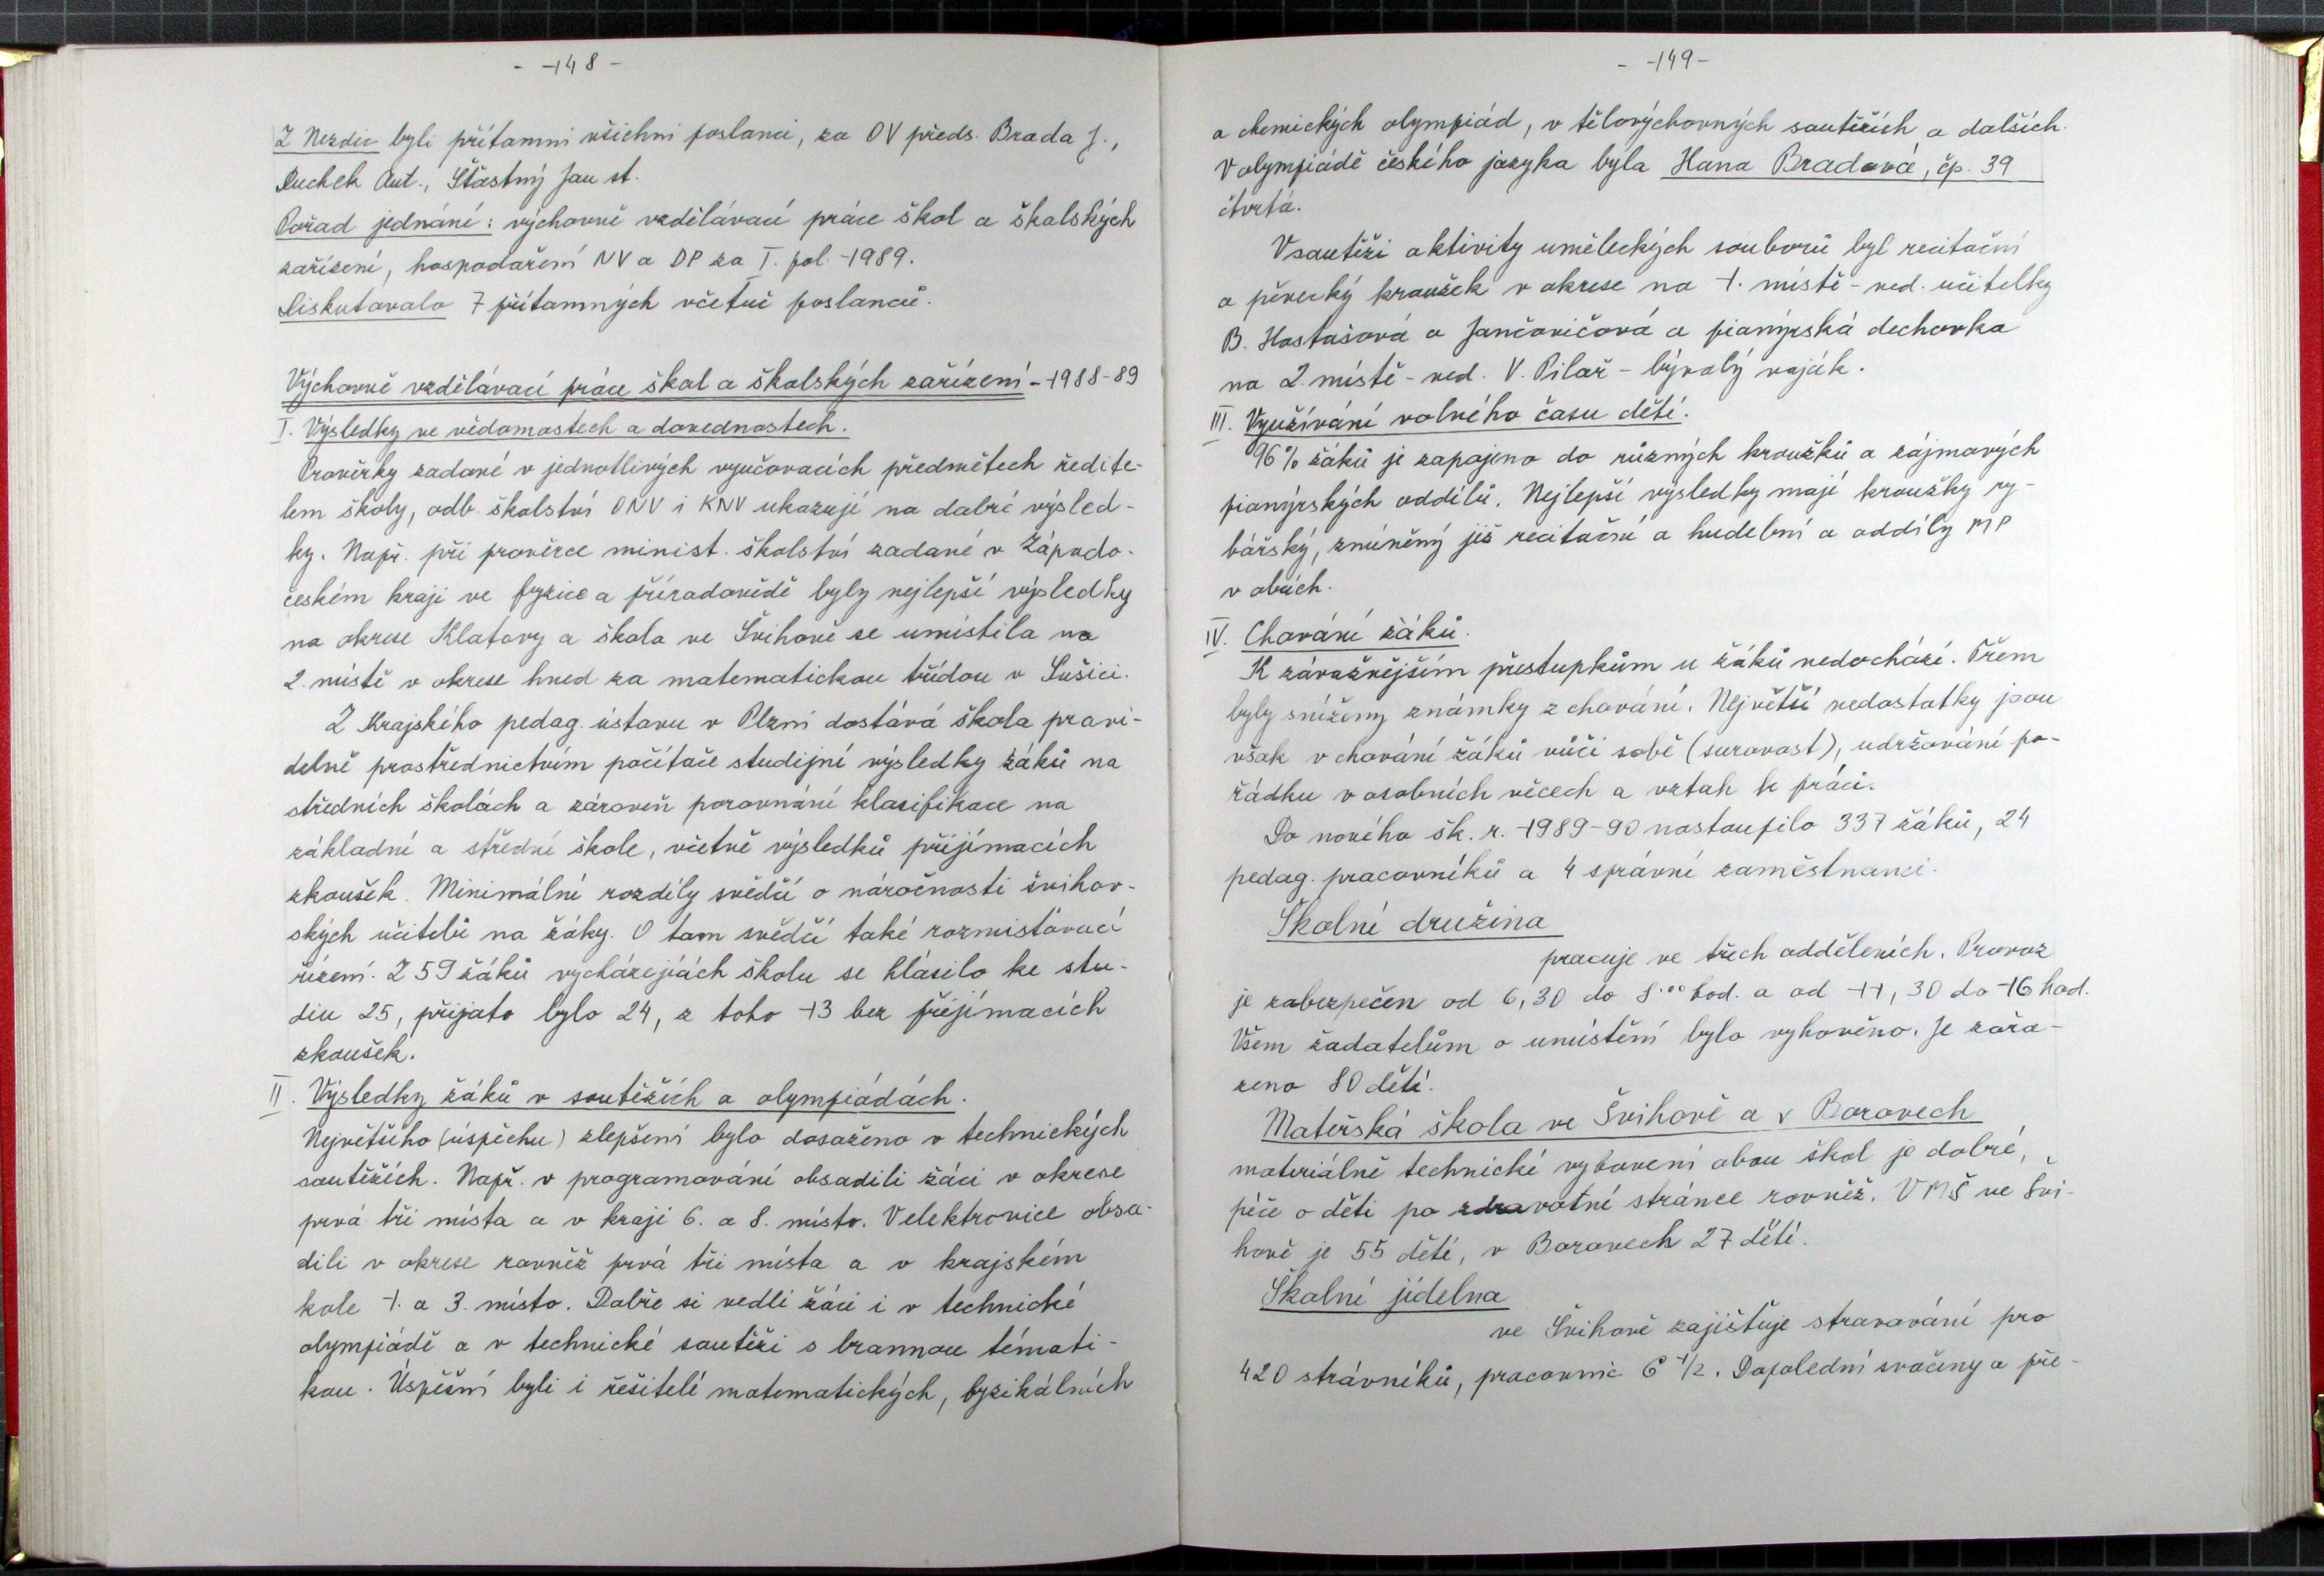 - 148 -
Z Nezdic byli přítamni všichni poslanci, za OV předs. Brada J.,
Duchek Ant., Šťastný Jan st.
Pořad jednání: výchovně vzdělávací práce škol a školských
zařízení, hospodaření NV a DP za I. pol. 1989.
Diskutovalo 7 přítomných včetně poslanců.
Výchovně vzdělávací práce škol a školských zařízení - 1988-89
I. Výsledky ve vědomostech a dovednostech.
Prověrky zadané v jednotlivých vyučovacích předmětech ředite-
lem školy, odb. školství ONV i KNV ukazují na dobré výsled-
ky. Např. při prověrce minist. školství zadané v Západo-
českém kraji ve fyzice a přírodovědě byly nejlepší výsledky
na okrese Klatovy a škola ve Švihově se umístila na
2. místě v okrese hned za matematickou třídou v Sušici.
Z Krajského pedag. ústavu v Plzni dostává škola pravi-
delně prostřednictvím počítače studijní výsledky žáků na
středních školách a zároveň porovnání klasifikace na
základní a střední škole, včetně výsledků přijímacích
zkoušek. Minimální rozdíly svědčí o náročnosti švihov-
ských učitelů na žáky. O tom svědčí také rozmisťovací
řízení. Z 59 žáků vycházejících školu se hlásilo ke stu-
diu 25, přijato bylo 24, z toho 13 bez přijímacích
zkoušek.
II. Výsledky žáků v soutěžích a olympiádách.
Největšího (úspěchu) zlepšení bylo dosaženo v technických
soutěžích. Např. v programování obsadili žáci v okrese
prvá tři místa a v kraji 6. a 8. místo. V elektronice obsa-
dili v okrese rovněž prvá tři místa a v krajském
kole 1. a 3. místo. Dobře si vedli žáci i v technické
olympiádě a v technické soutěži s brannou témati-
kou. Úspěšní byli i řešitelé matematických, fyzikálních
- 149 -
a chemických olympiád, v tělovýchovných soutěžích a dalších.
V olympiádě českého jazyka byla Hana Bradová, čp. 39
čtvrtá.
V soutěži aktivity uměleckých souborů byl recitační
a pěvecký kroužek v okrese na 1. místě - ved. učitelky
B. Hostašová a Jančovičová a pionýrská dechovka
na 2. místě - ved. V. Pilař - bývalý voják.
III. Využívání volného času dětí.
96% žáků je zapojeno do různých kroužků a zájmových
pionýrských oddílů. Nejlepší výsledky mají kroužky ry-
bářský, zmíněný již recitační a hudební a oddíly MP
v obcích.
IV. Chování žáků.
K závažnějším přestupkům u žáků nedochází. Třem
byly sníženy známky z chování. Největší nedostatky jsou
však v chování žáků vůči sobě (surovost), udržování po-
řádku v osobních věcech a vztah k práci.
Do nového šk. r. 1989-90 nastoupilo 337 žáků, 24
pedag. pracovníků a 4 správní zaměstnanci.
Školní družina
pracuje ve třech odděleních. Provoz
je zabezpečen od 6,30 do 8.00 hod. a od 11,30 do 16 hod.
Všem žadatelům o umístění bylo vyhověno. Je zařa-
zeno 80 dětí.
Mateřská škola ve Švihově a v Borovech
materiálně technické vybavení obou škol je dobré,
péče o děti po zdravotní stránce rovněž. V MŠ ve Švi-
hově je 55 dětí, v Borovech 27 dětí.
Školní jídelna
ve Švihově zajišťuje stravování pro
420 strávníků, pracovnic 6 1/2. Dopolední svačiny a pře-